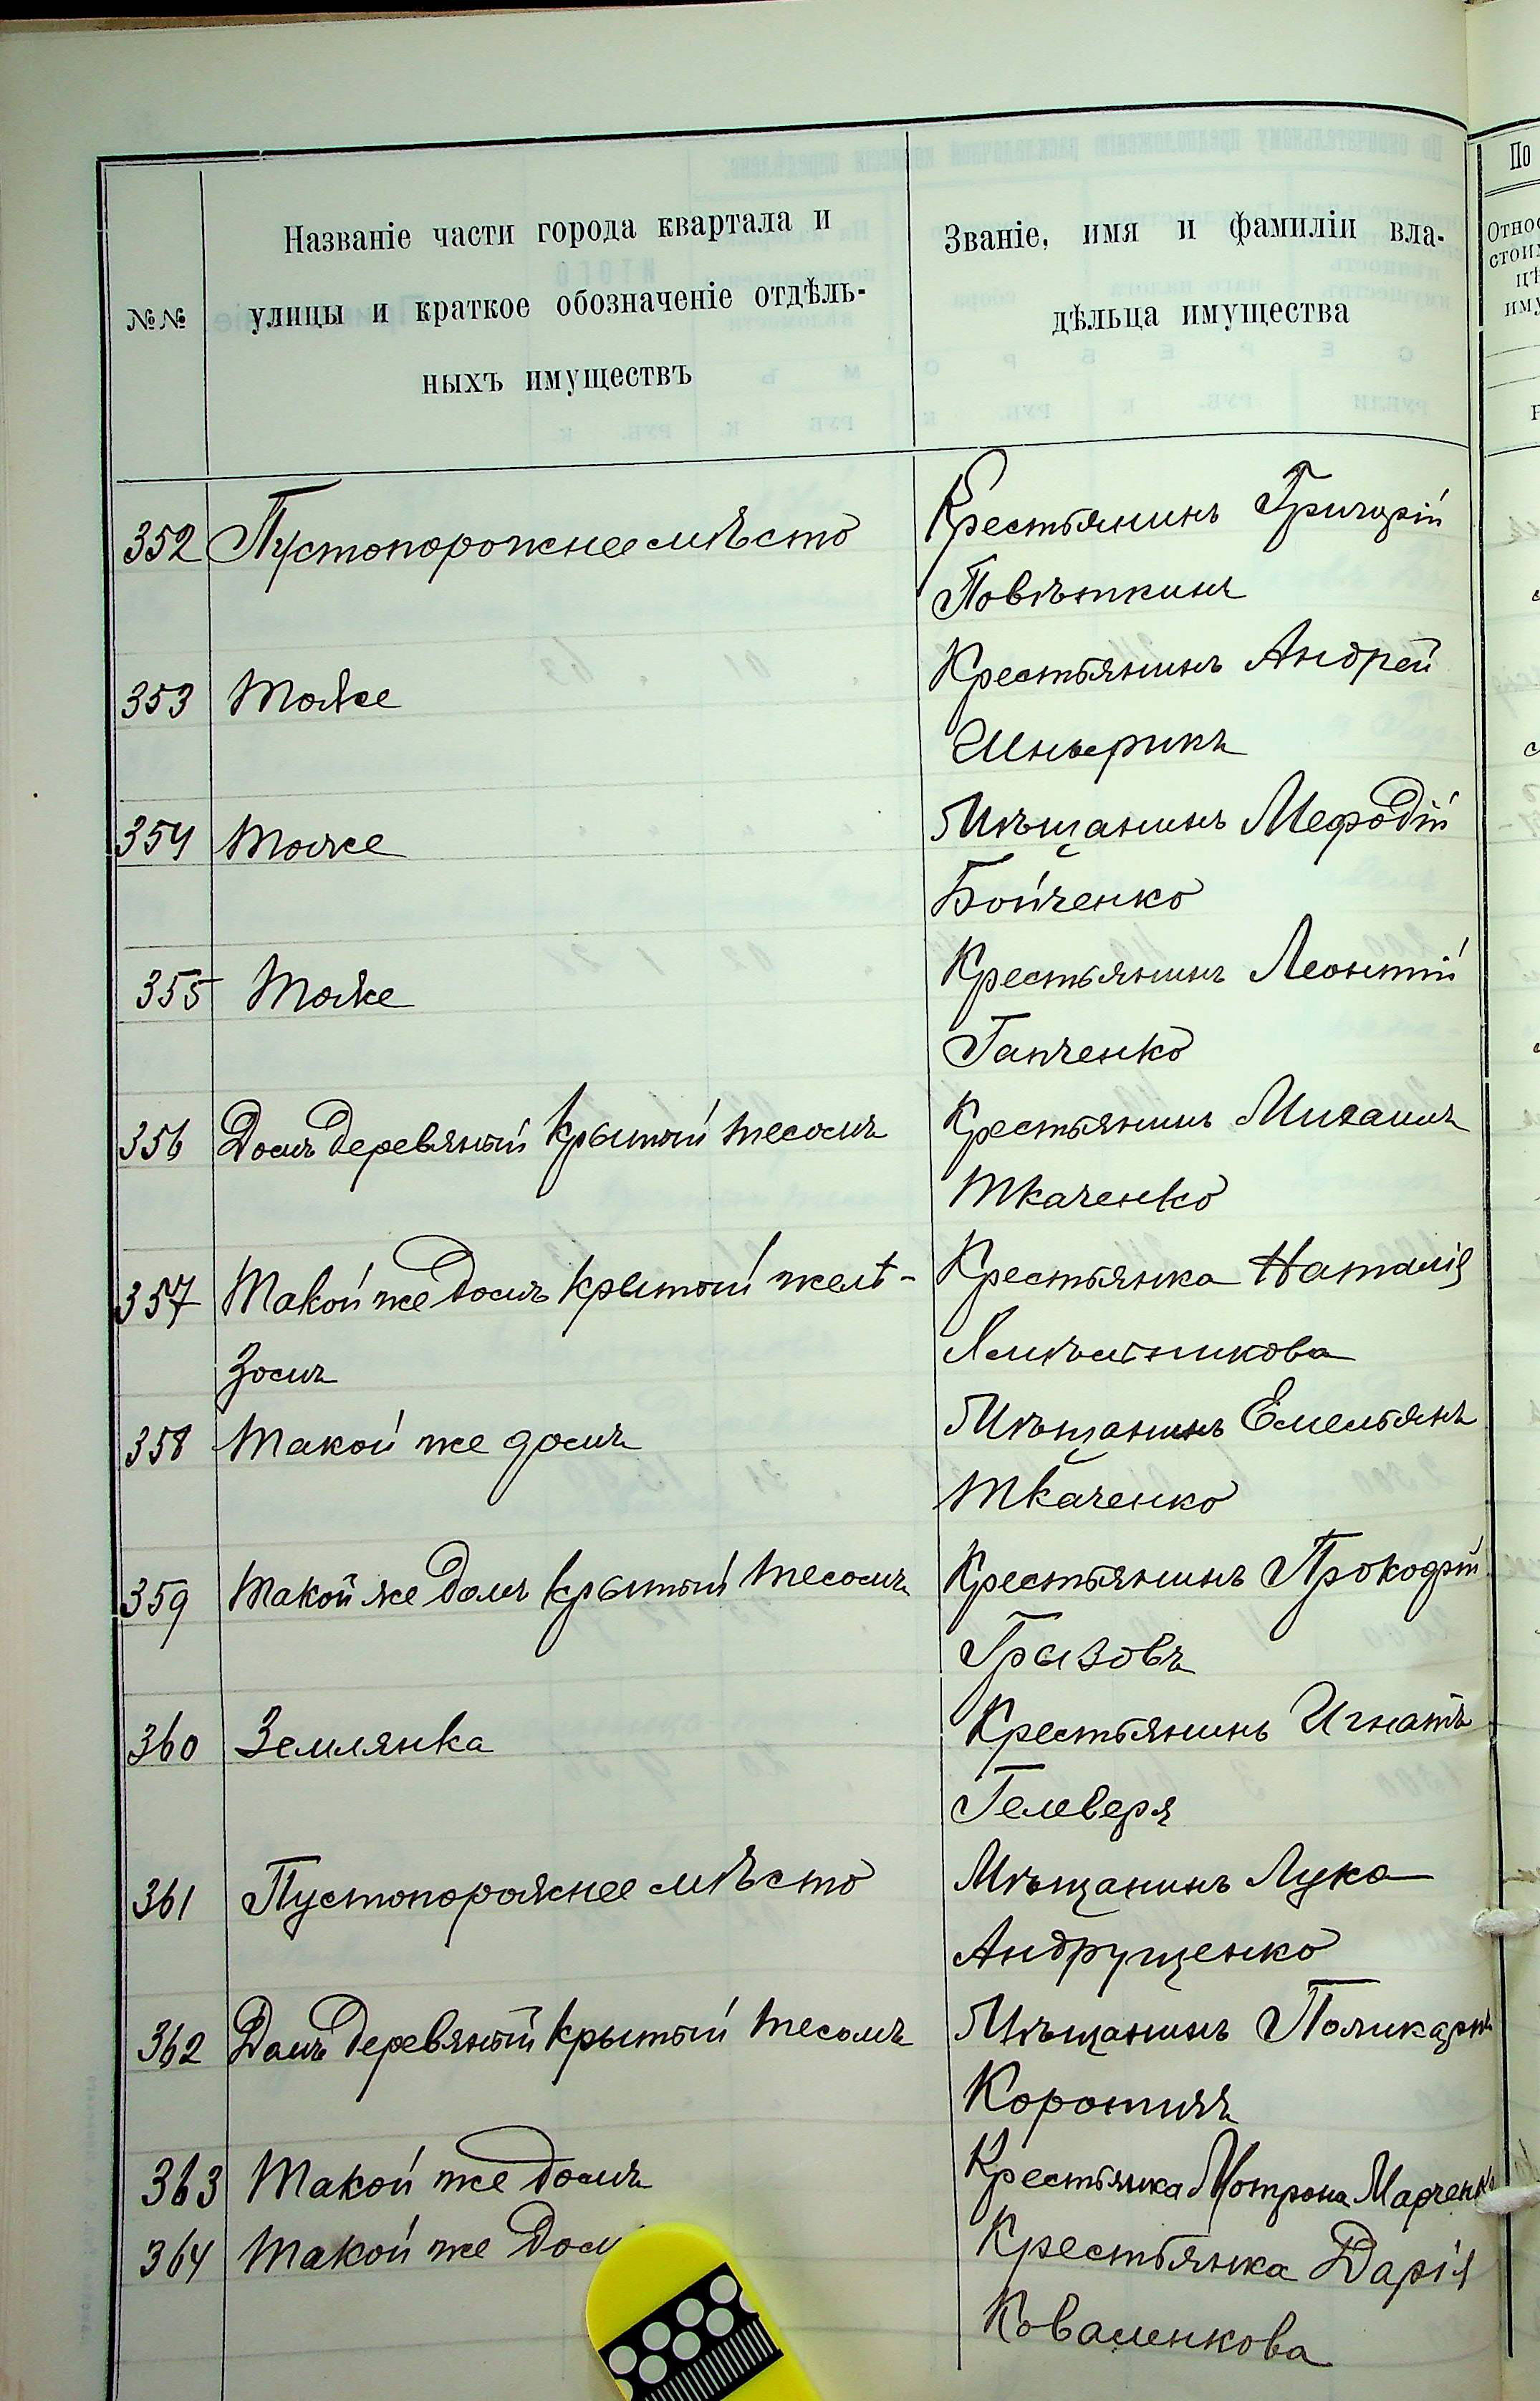 №№
Названіе части города квартала и
улицы и краткое обозначеніе отдѣль-
ныхъ имуществъ
Званіе, имя и фамиліи вла-
дѣльца имущества
352 Пустопорожнее мѣсто Крестьянинъ Григорій
Повѣткинъ
353 Тоже Крестьянинъ Андрей
354 Тоже Мѣщанинъ Мефодій
Бойченко
355 Тоже Крестьянинъ Леонтій
Ганченко
356 Домъ деревяный крытый тесомъ Крестьянинъ Михаилъ
Ткаченко
357 Такой же домъ крытый желѣ- Крестьянка Наталія
зомъ
358 Такой же домъ Мѣщанинъ Емельянъ
Ткаченко
359 Такой же домъ крытый тесомъ Крестьянинъ Прокофій
Грызовъ
360 Землянка Крестьянинъ Игнатъ
Гелеверя
361 Пустопорожнее мѣсто Мѣщанинъ Лука
Андрущенко
362 Домъ деревяный крытый тесомъ Мѣщанинъ Поликарпъ
363 Такой же домъ Крестьянка Мотрона Марченк
364 Такой же дом Крестьянка Дарія
Коваленкова
По
Относ
стоим
цѣ
иму